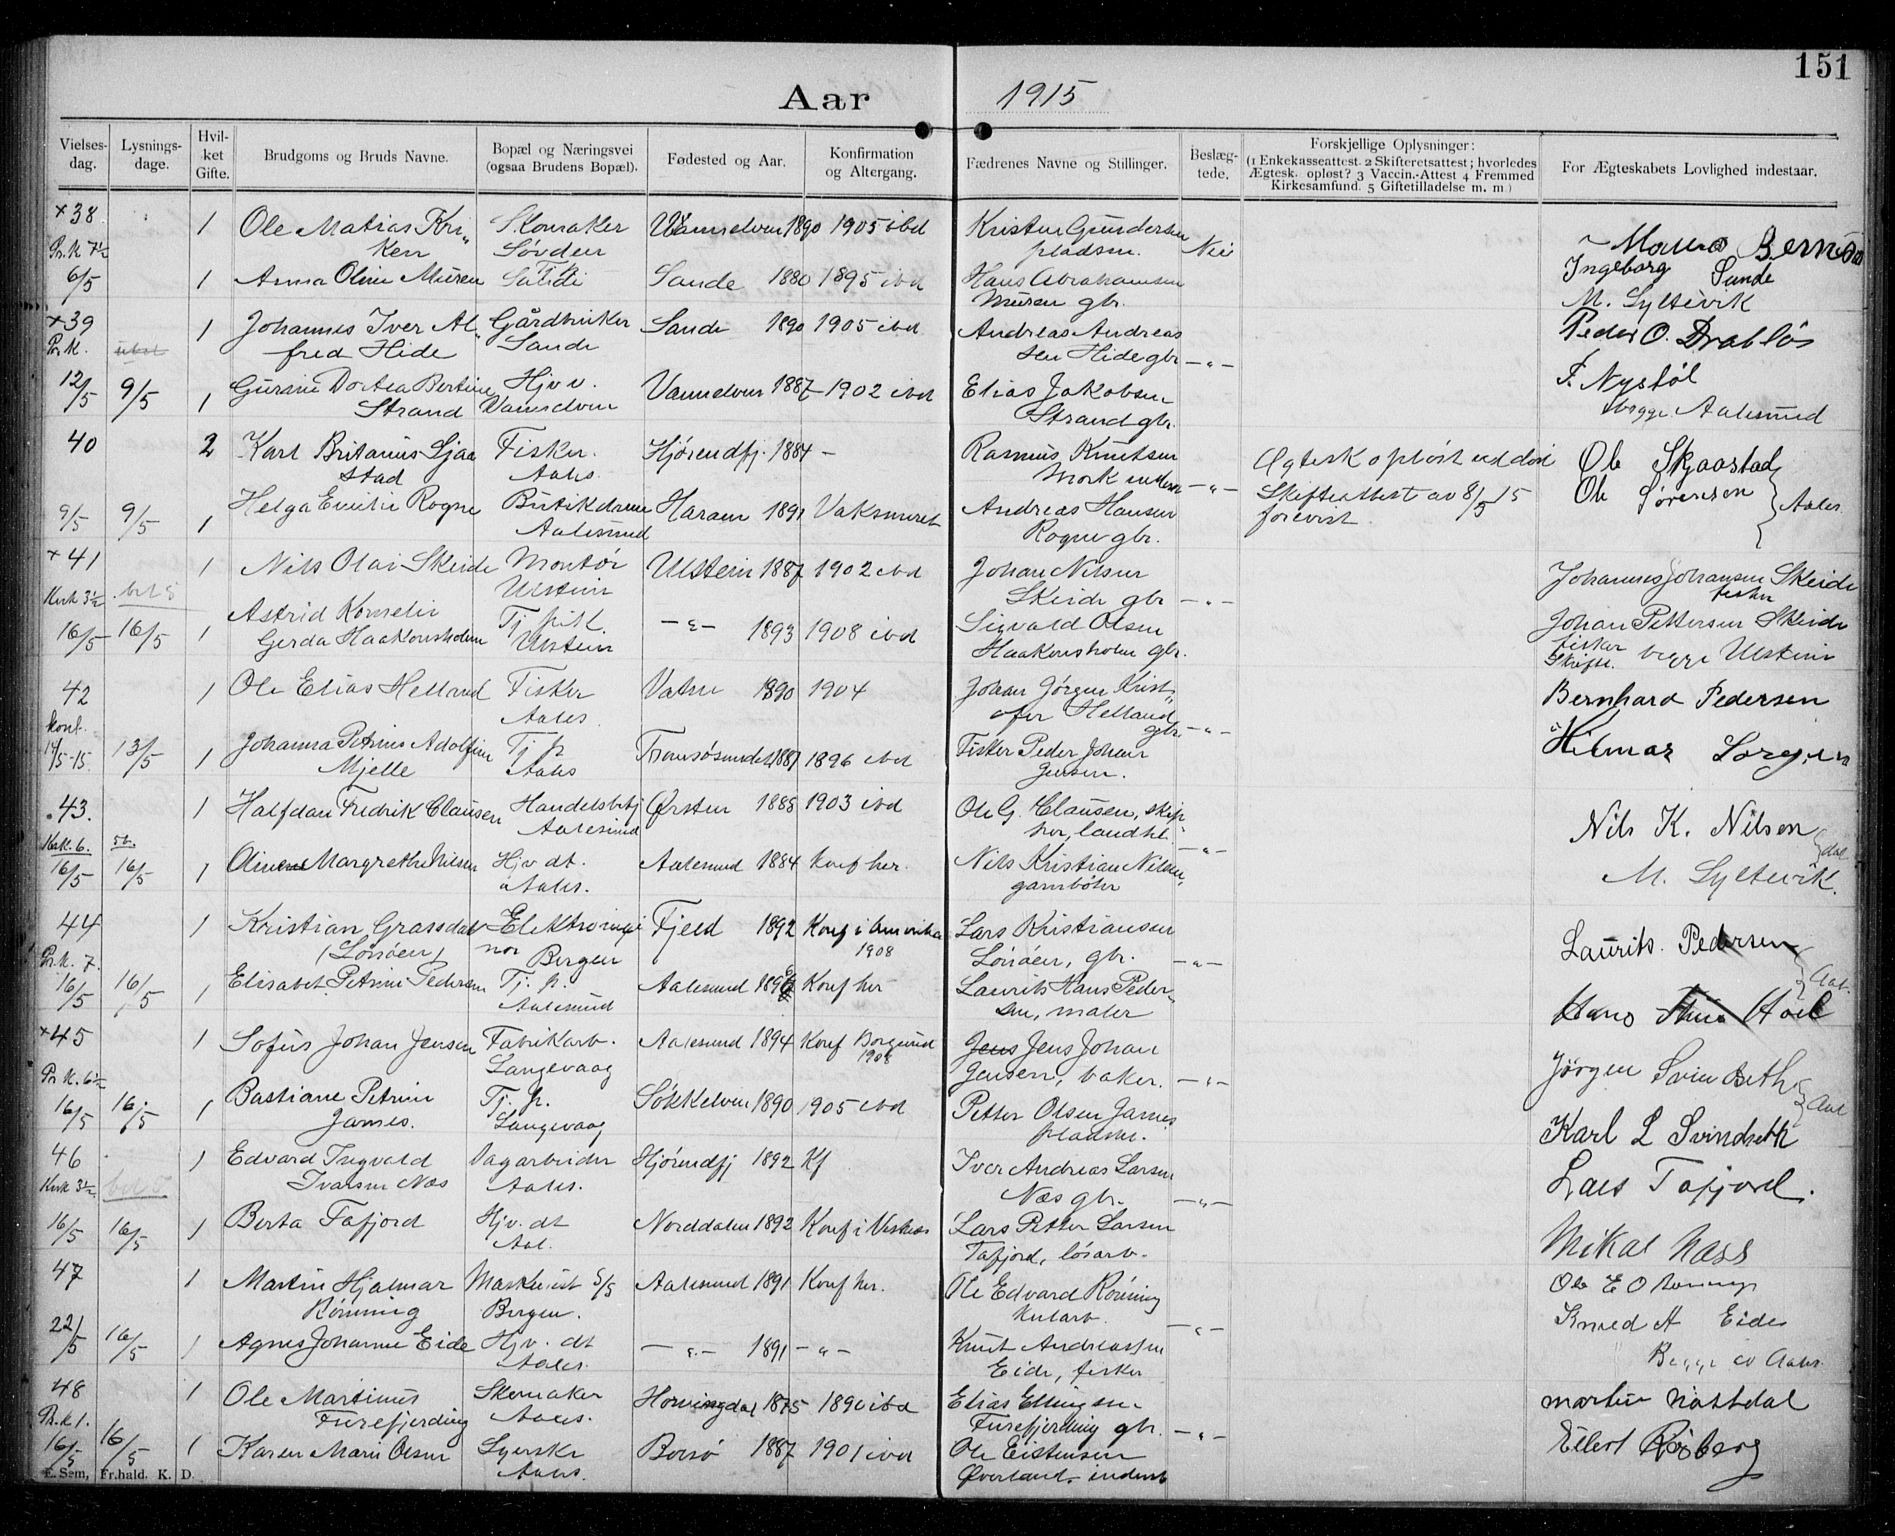 151
Aar 1915
Vielses- dag. Lysnings- dage. Hvil- ket Gifte. Brudgoms og Bruds Navne. Bopæl og Næringsvei (ogsaa Brudens Bopæl). Fødested og Aar. Konfirmation og Altergang. Fædrenes Navne og Stillinger. Beslæg- tede. Forskjellige Oplysninger: (1 Enkekasseattest. 2 Skifteretsattest; hvorledes Ægtesk. opløst? 3 Vaccin.-Attest 4 Fremmed Kirkesamfund. 5 Giftetilladelse m. m) For Ægteskabets Lovlighed indestaar.
×38 1 Ole Matias Kri- Skomaker Vannelven 1890 1905 ibd Kristen Gundersen
Pr. K 7½ ken Søvden pladsm. Nei
6/5 1 Anna Oline Muren Sande 1880 1895 ibd Hans Abrahamsen Ingeborg Sunde
Muren gbr. M. Syltevik
×39 1 Johannes Iver Al- Gårdbruker Sande 1890 1905 ibd Andreas Andreas Peder O. Drabløs
Pr. K. fred Hide Sande sen Hide gbr -"-
12/5 9/5 1 Gurine Dortea Bertine Hjv v. Vannelven 1887 1902 ibd Elias Jakobsen F. Nystøl
Strand Vannelven Strand gbr. begge Aalesund
40 2 Karl Britanus Sjaa Fisker. Hjørendfj. 1884 - Rasmus Knutsen Ægtesk opløst ved død Ole Skjaastad
stad Aales. Mork -"- Skifteattest av 8/5 15 Ole Sørensen Aales.
9/5 9/5 1 Helga Emilie Rogne Butikdame Haram 1891 Andreas Hansen forevist.
Aalesund Rogne gbr.
×41 1 Nils Olai Skeide Montør Ulstein 1887 1902 ibd Johan Nilsen Johannes Johansen Skeide
Kirk 3½ Ulstein Skeide gbr -"- fisker
16/5 16/5 1 Astrid Kornelie Tj. pik. -"- 1893 1908 ibd Sigvald Olsen Johan Pettersen Skeide
Gerda Haakonsholm Ulstein Haakonsholm gbr. fisker begge Ulstein
42 1 Ole Elias Helland Fisker Vatne 1890 1904 Johan Jørgen Krist- Bernhard Pedersen
kont. Aales. ofer Helland gbr. -"-
14/5-15 13/5 1 Johanna Petrine Adolfine Tj. p. Tromsøsundet 1881 1896 ibd Fisker Peder Johan Hilmar
Mjelle Aales Jensen.
43. 1 Halfdan Fredrik Clausen Handelsbetj Ørsten 1885 1903 ibd Ole G. Clausen, skip- Nils K. Nilsen
Kirk. 6. Aalesund per, landhl. -"- Aal
16/5 16/5 1 Margrethe Nilsen Hjv dt. Aalesund 1884 Konf her. Nils Kristian Nilsen, M. Syltevik.
Aales. garnbøter
44 1 Kristian Grassdal Elektroinge Fjeld 1892 Konf i Amerika Lars Kristiansen Laurits. Pedersen
Pr. K. 7. (Lonøen) niør Bergen 1908 Lonøen, gbr. -"-
16/5 16/5 1 Elisabet Petrine Pedersen Tj. p. Aalesund Konf her Laurits Hans Peder- Aal.
Aalesund sen, maler Hans
×45 1 Sofus Johan Jensen Fabrikarb. Aalesund 1894 Konf Borgund Jens Johan
Pr K. 6½ Langevaag 1908 Jensen, baker. -"- Jørgen
16/5 16/5 1 Bastiane Petrine Tj. p. Søkkelven 1890 1905 ibd Petter Olsen James Aal
James. Langevaag pladsm. Karl L Svindseth
46 1 Edvard Ingvald Dagarbeider Hjørendfj 1892 Kf Iver Andreas Larsen Lars Tafjord.
Kirk 3½ Ivarsen Næs Aales. Næs gbr. -"-
16/5 16/5 1 Berta Tafjord Hjv. dt Norddalen 1892 Konf i Lars Petter Larsen Mikal Næss
Aal. Tafjord, løsarb.
47 1 Martin Hjalmar Maskinist S/S Aalesund 1891 Konf her. Ole Edvard Rønning Ole E
Rønning Bergen. kularb. -"-
22/5 16/5 1 Agnes Johanne Eide Hjv. dt -"- 1891 -"- Knut Andreassen Knud A Eide
Aales. Eide, fisker Begge av Aales.
48 1 Ole Martinus Skomaker Hornningdal 1875 1890 ibd Elias Ellingsen Martin Nattdal
Pr. K 1. Furefjerding Aales. Furefjerding gbr. -"-
16/5 16/5 1 Karen Marie Olsen Syerske Borsø 1887 1901 ibd Ole Eistensen Eilert
Aales. Øverland
E. Sem, Fr.hald. K. D.